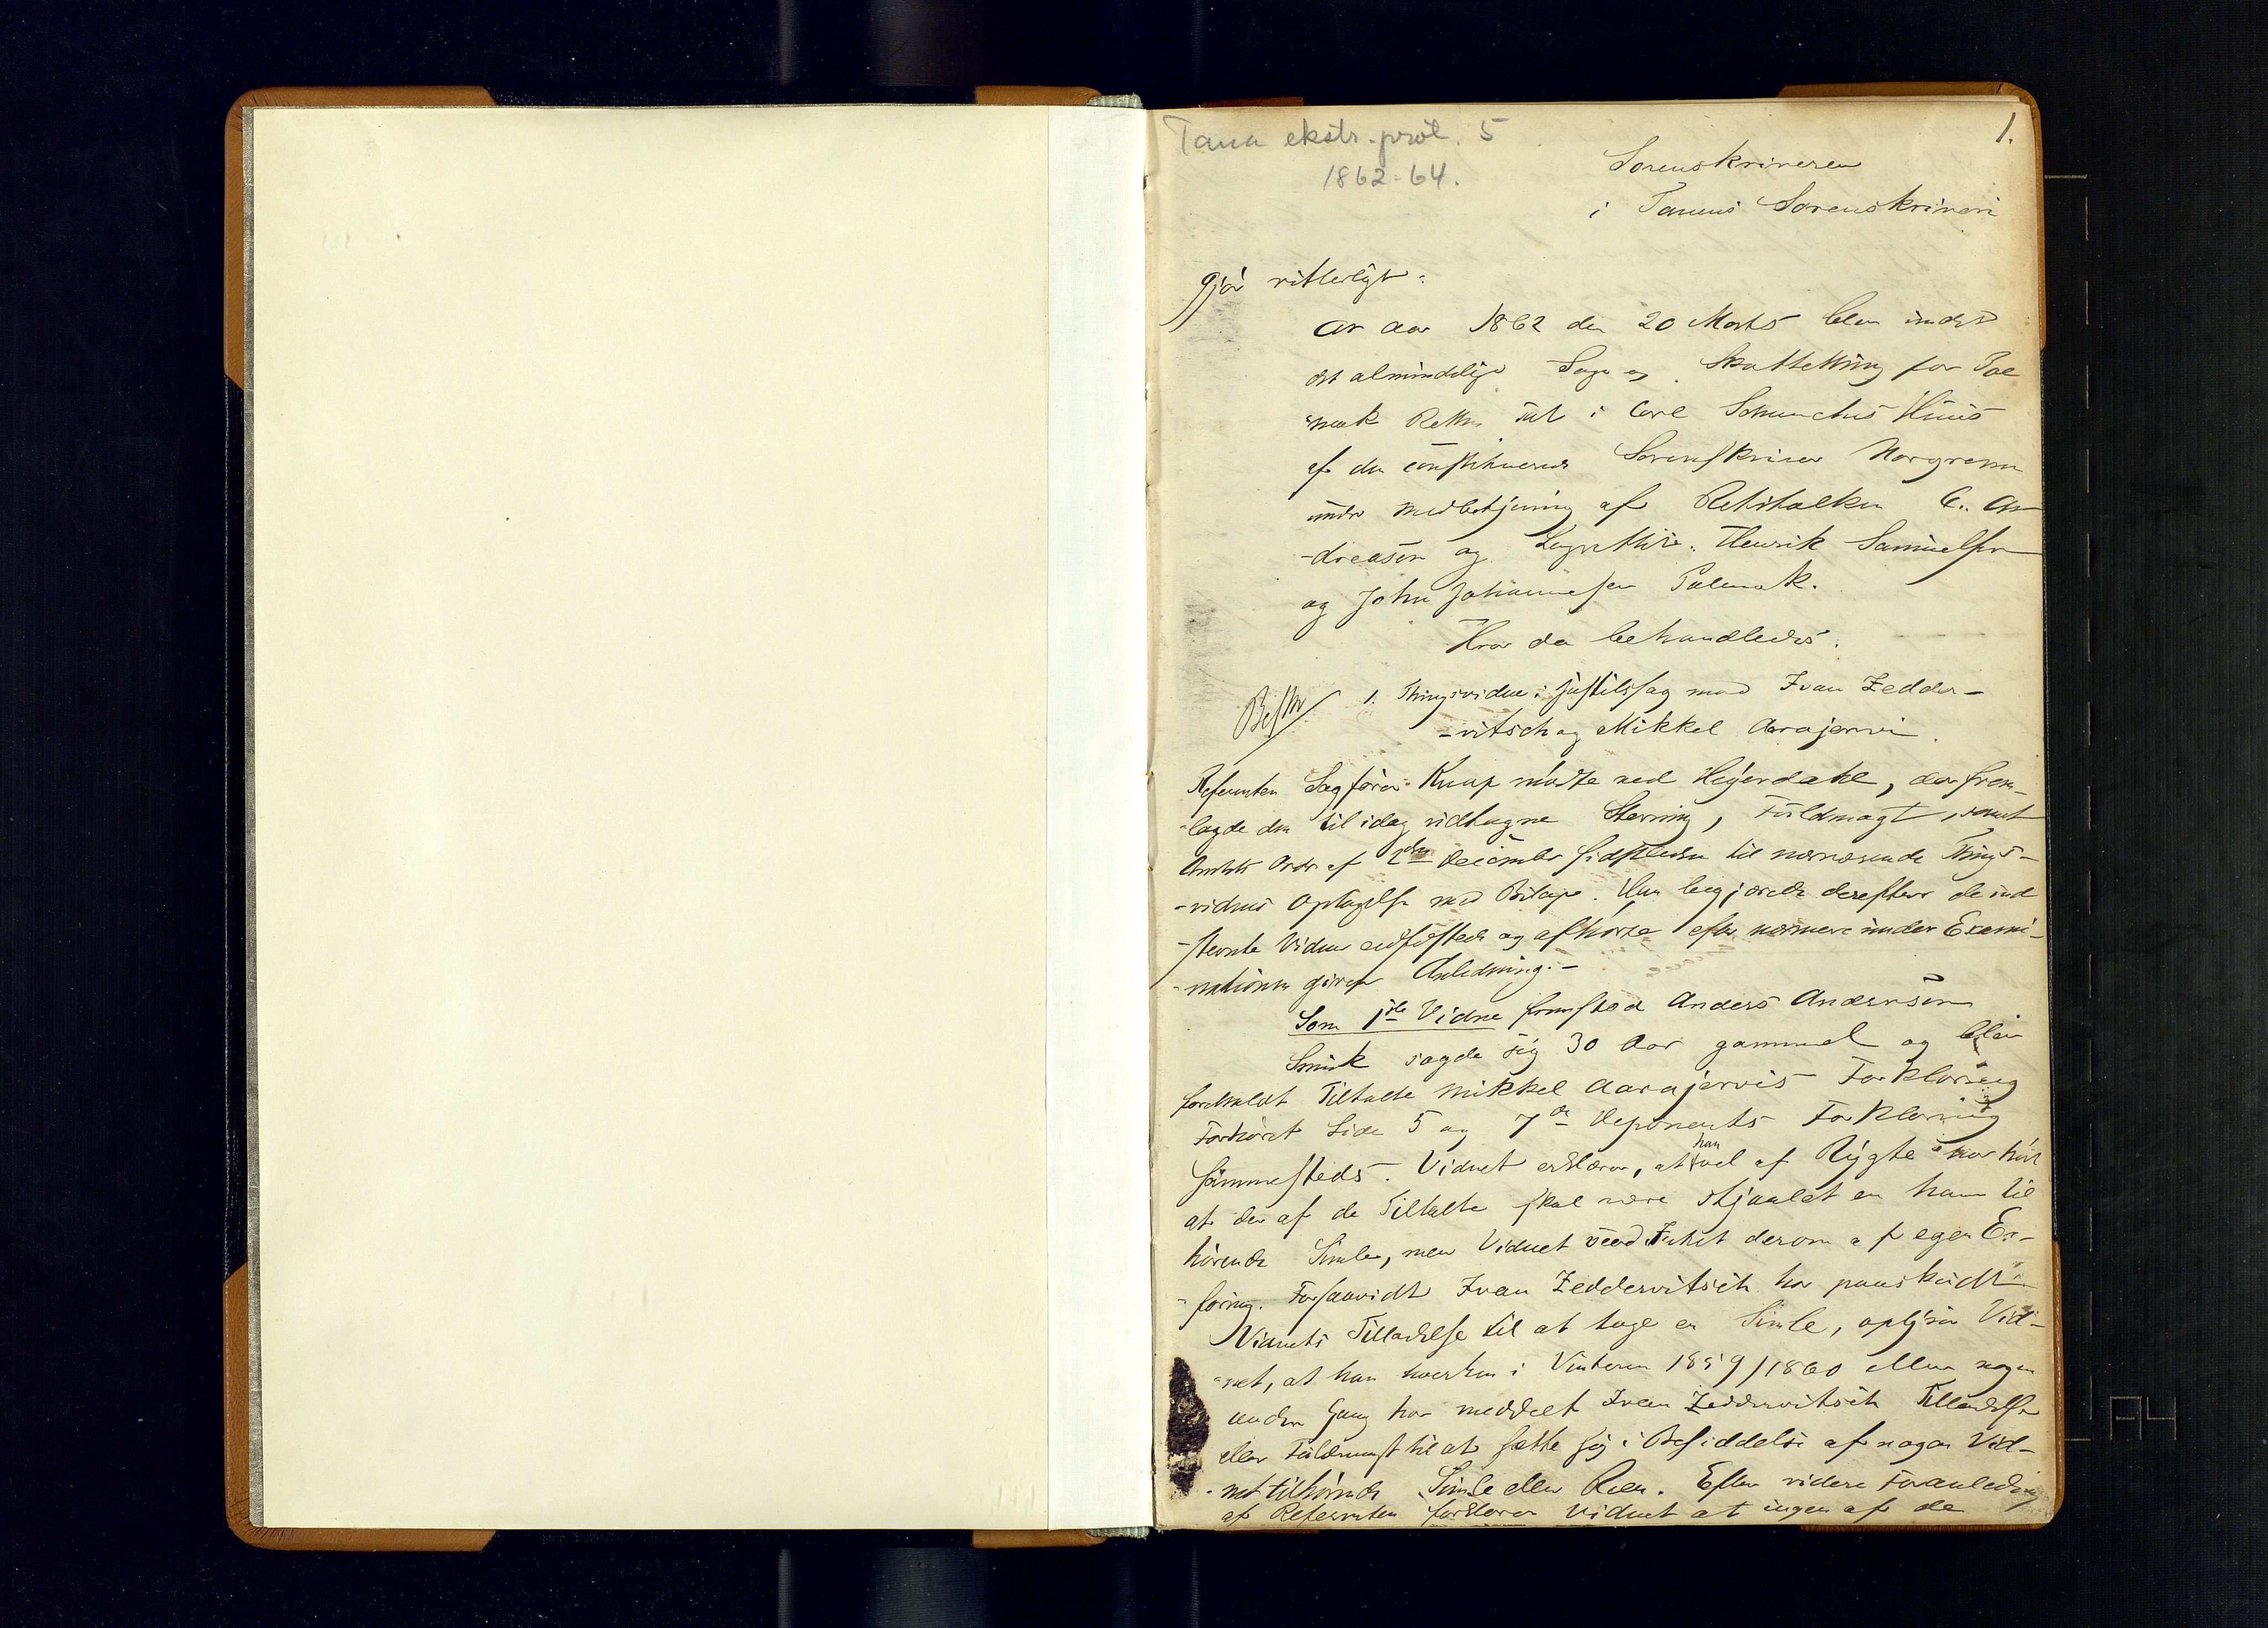 Tana ekstr. prot. 5
1862-64.
1.
Sorenskriveren
i Tanens Sorenskriveri
gjör vitterligt:
at Aar 1862 den 20 Marts blev under
det almindelige Sage og Skattething for Pol
mak Retten sat i Carl Schanches Huus
af den constituerede Sorenskriver Norgreen
under Medbetjening af Retstolken C. An
-dreasen og Lagrettet: Henrik Samuelsen
og John Johannesen Polmak.
Hvor da behandledes:
1. Thingsvidne i Justitssag mod Ivan Zedder-
-vitsch og Mikkel Aarajervi.
Referenten Sagförer Knap mödte ved Heyerdahl, der frem-
-lagde den til idag vidtagne Stevning, Fuldmagt, samt
Amtets Ordre af 2den December sidstleden til nærværende Things-
-vidnes Optagelse med Bilage. Han begjærede derefter de ind
-stevnte Vidner eidfæstede og afhörte efter nærmere under Exami-
-nationen given Anledning.-
Som 1ste Vidne fremstod Anders Andersen
Smuk sagde sig 30 Aar gammel og blev
foreholdt Tiltalte Mikkel Aarajervis Forklaring
Forhöret Side 5 og 7de Deponents Forklaring
sammesteds. Vidnet erklærer, at han vel af Rygte har hört
at der af de Tiltalte skal være stjaalet en ham til
hörende Simle, men Vidnet veed Intet derom af egen Er-
-faring. Forsaavidt Ivan Zeddervitsch har paaskudt
Vidnets Tilladelse til at tage en Simle, oplyser Vid-
-net, at han hverken i Vinteren 1859/1860 eller nogen
anden Gang har meddelt Ivan Zeddervitsch Tilladelse
eller Fuldmagt til at sætte sig i Besiddelse af nogen Vid-
-net tilhörende Simle eller Reen. Efter videre Foranledning
af Referenten forklarer Vidnet at ingen af de